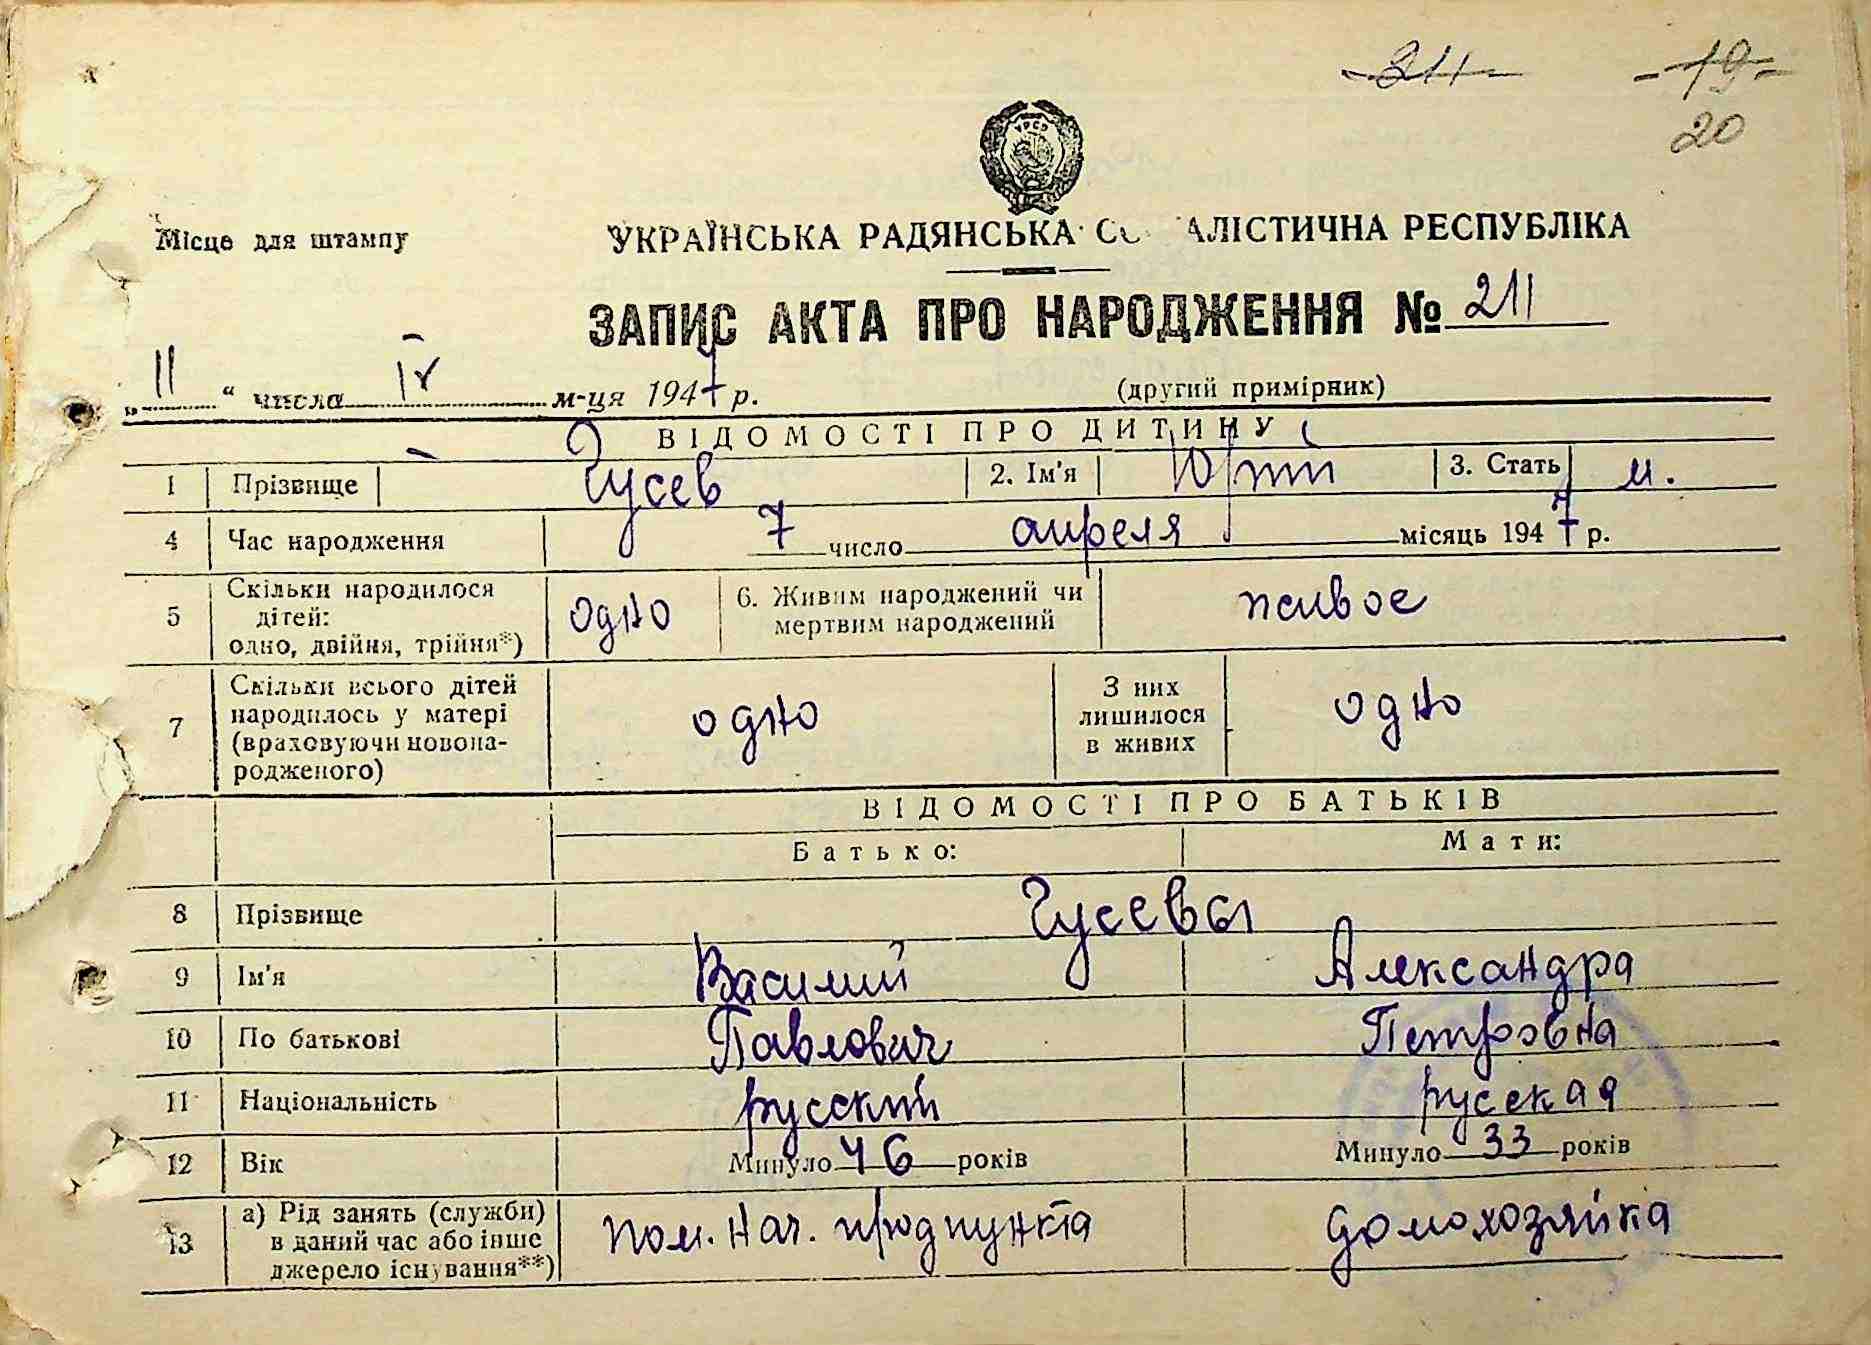 211 -19-
20
УРСР
Місце для штампу УКРАЇНСЬКА РАДЯНСЬКА СОЦІАЛІСТИЧНА РЕСПУБЛІКА
ЗАПИС АКТА ПРО НАРОДЖЕННЯ № 211
„ 11 “ числа IV м-ця 1947 р. (другий примірник)
ВІДОМОСТІ ПРО ДИТИНУ
1 Прізвище Гусев 2. Ім'я Юрий 3. Стать м.
4 Час народження 7 число апреля місяць 1947 р.
5 Скільки народилося
дітей:
одно, двійня, трійня*) одно 6. Живим народжений чи
мертвим народжений живое
7 Скільки всього дітей
народилось у матері
(враховуючи новона-
родженого) одно З них
лишилося
в живих одно
ВІДОМОСТІ ПРО БАТЬКІВ
Батько: Мати:
8 Прізвище Гусевы
9 Ім'я Василий Александра
10 По батькові Павлович Петровна
11 Національність русский русская
12 Вік Минуло 46 років Минуло 33 років
13 а) Рід занять (служби)
в даний час або інше
джерело існування**) пом. нач. продпункта домохозяйка